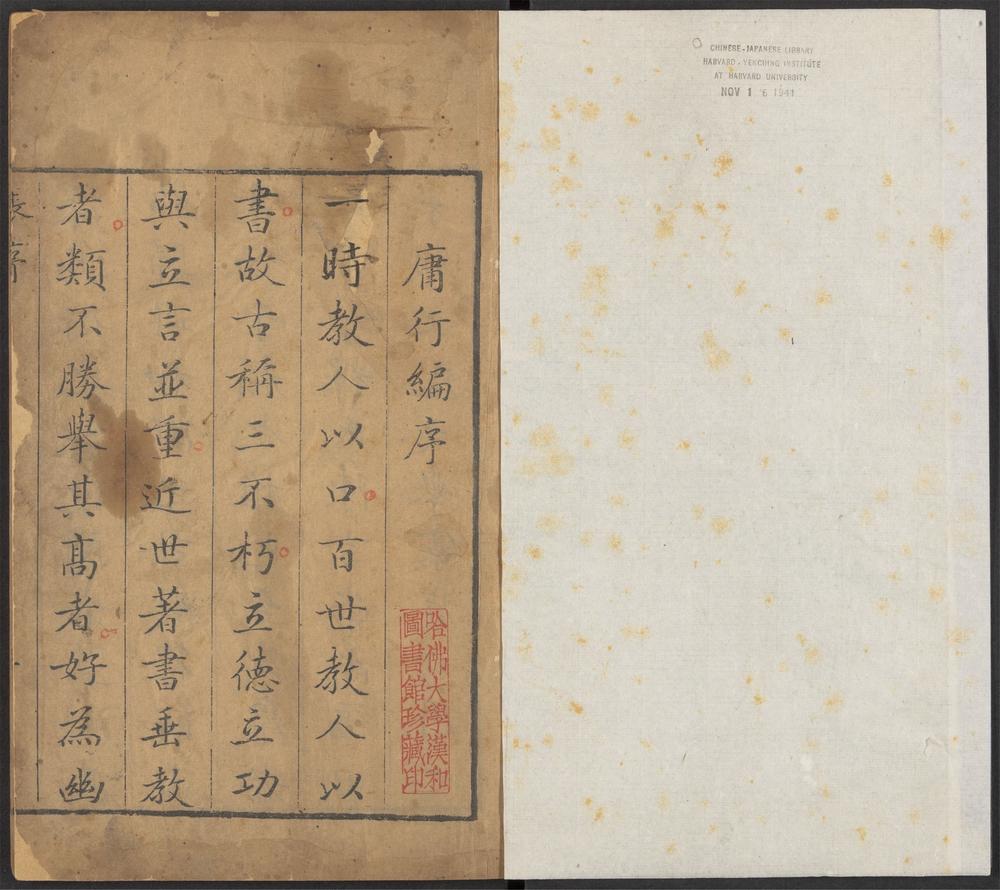 CHINESE-JAPANESE LIBRARY
HARVARD-YENCHING INSTITUTE
AT HARVARD UNIVERSITY
NOV 16 1941
庸行編序
一時教人以口百世教人以
書故古稱三不朽立德立功
與立言並重近世著書垂教
者類不勝舉其高者好為幽
哈佛大學漢和
圖書館珍藏印